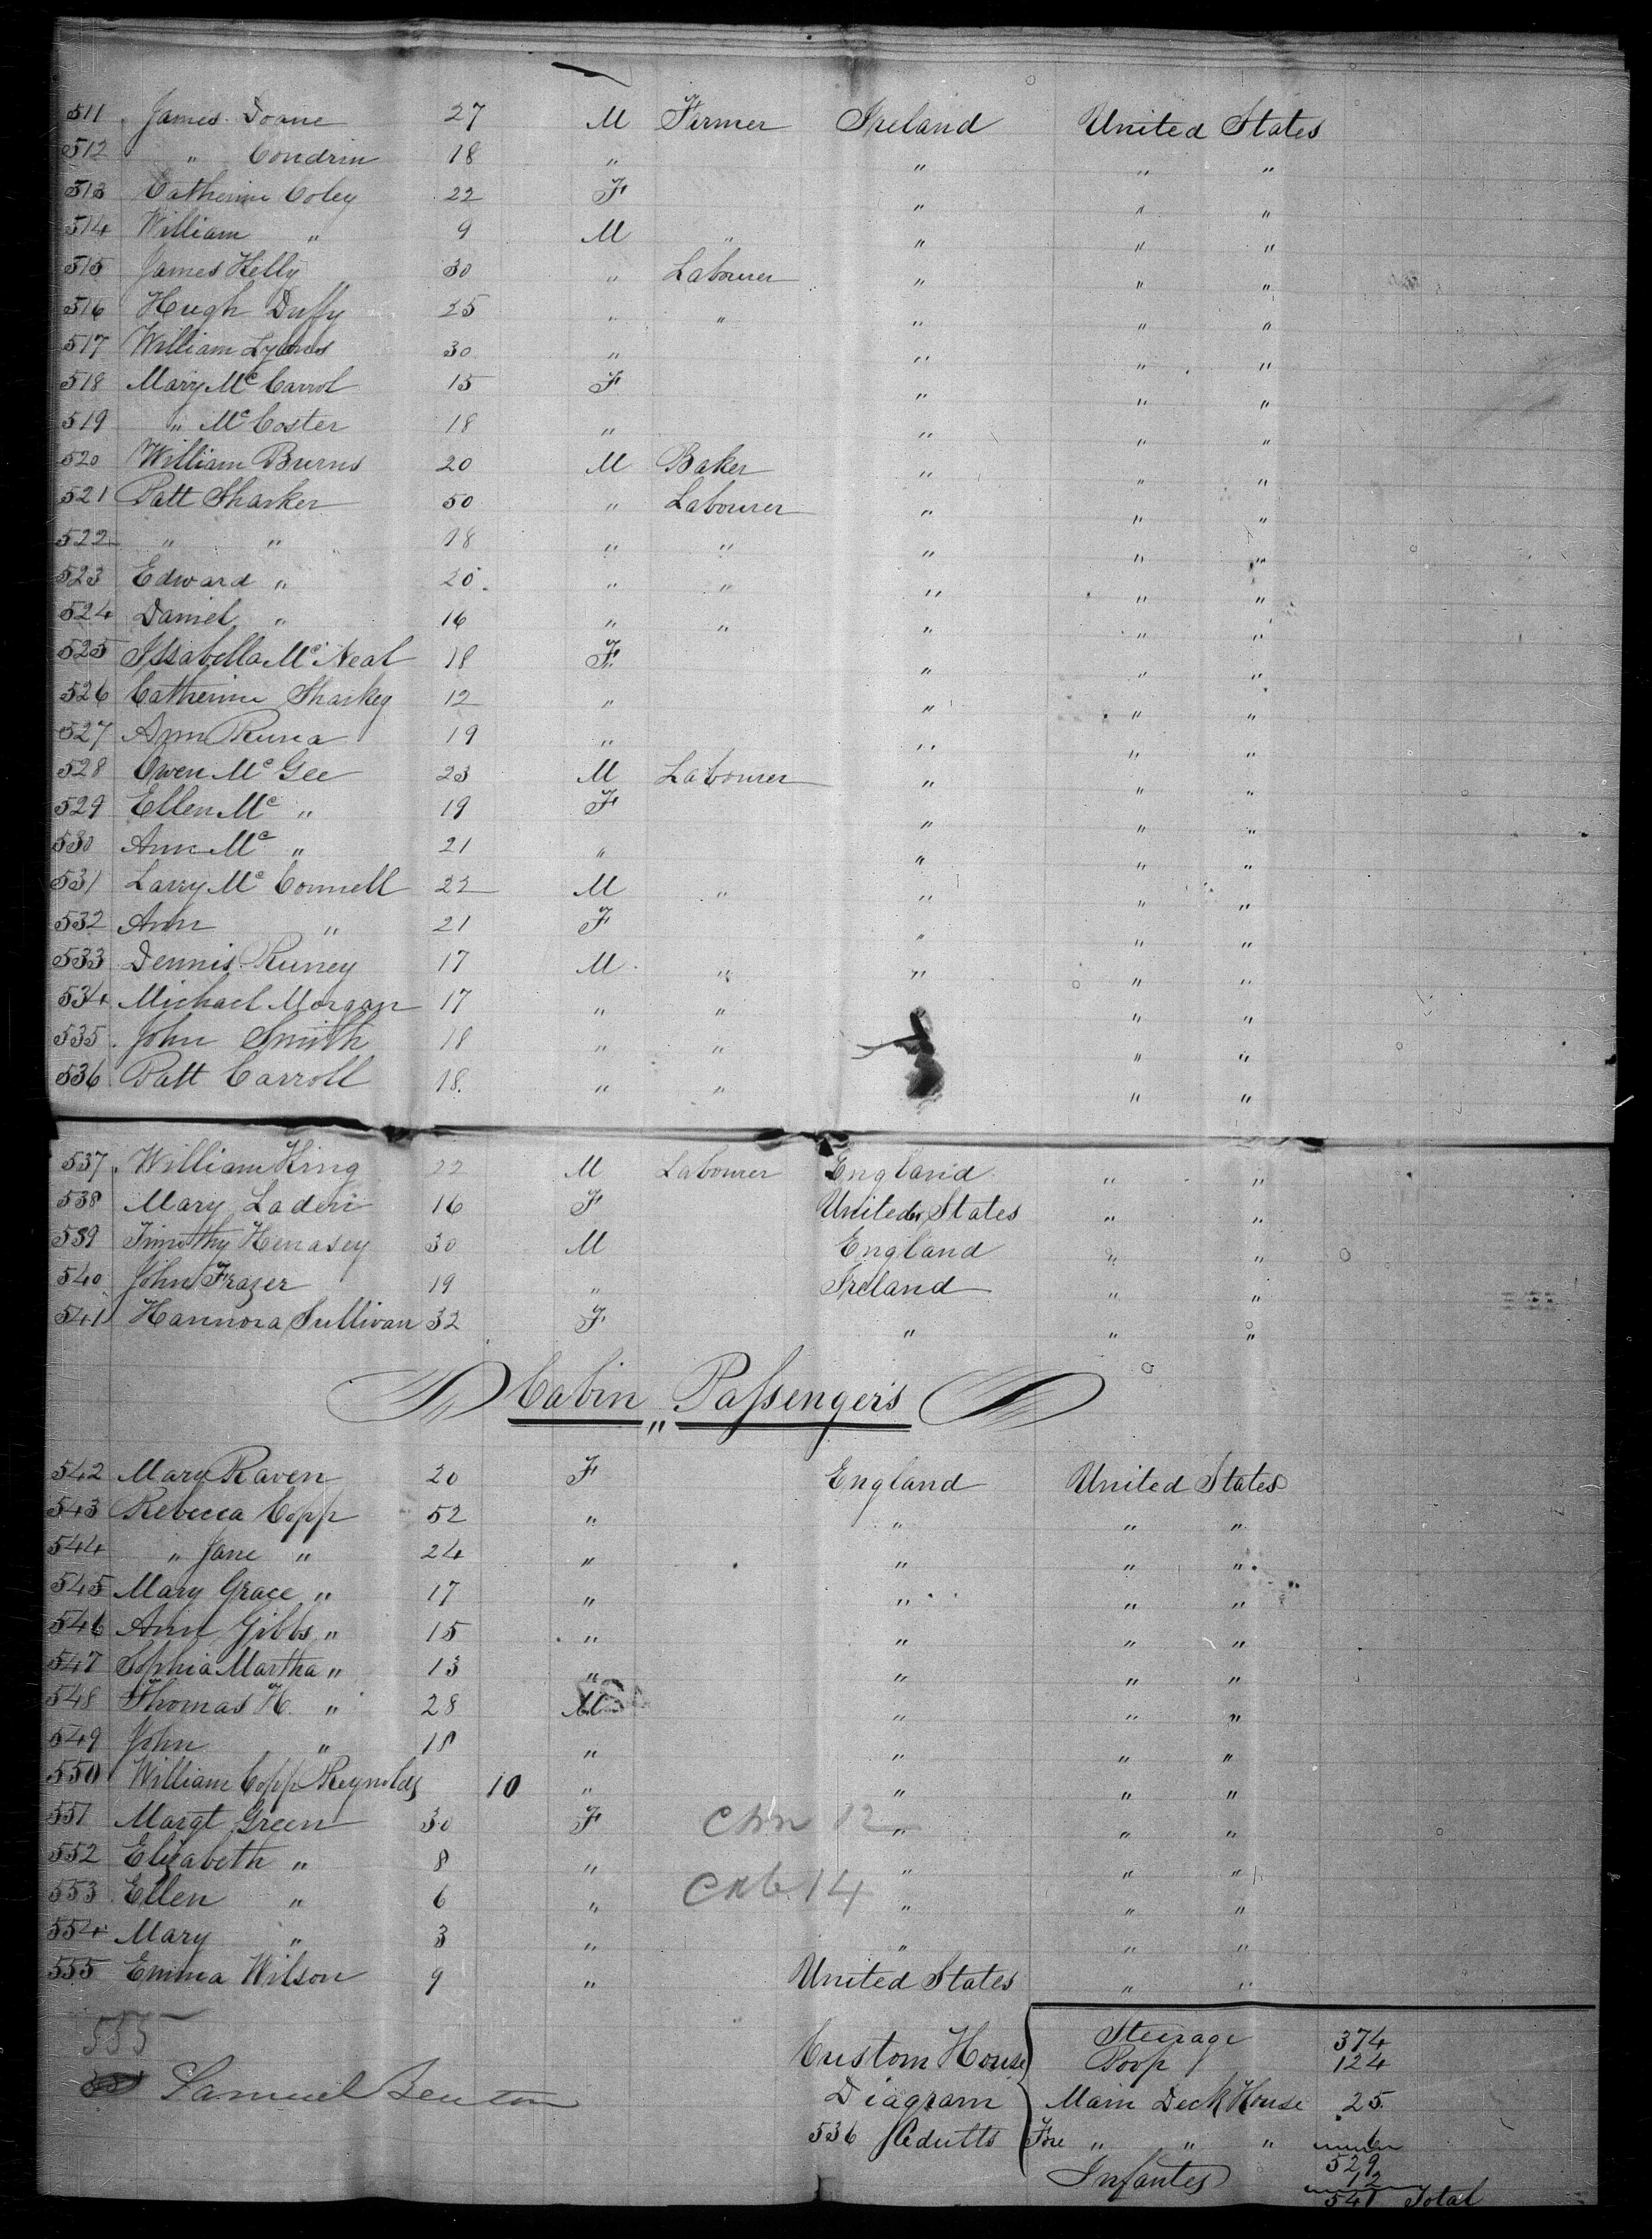 511 James Doane 27 M Firmer Ireland United States
512 " Condrin 18 " " " "
513 Catherine Coley 22 F " " "
514 William " 9 M " " " "
515 James Kelly 30 " Labourer " " "
516 Hugh Duffy 25 " " " " "
517 William Lyons 30 " " " "
518 Mary Mc Carrol 15 F " " "
519 " Mc Coster 18 " " " "
520 William Burns 20 M Baker " " "
521 Patt Sharker 50 " Labourer " " "
522 " " 18 " " " " "
523 Edward " 20 " " " " "
524 Daniel " 16 " " " " "
525 Issabella Mc Neal 18 F " " "
526 Catherine Sharkey 12 " " " "
527 Ann Runa 19 " " " "
528 Owen Mc Gee 23 M Labourer " " "
529 Ellen Mc " 19 F " " "
530 Ann Mc " 21 " " " "
531 Larry Mc Connell 22 M " " " "
532 Ann " 21 F " " "
533 Dennis Runey 17 M " " " "
534 Michael Morgan 17 " " " "
535 John Smith 18 " " " "
536 Patt Carroll 18 " " " "
537 William King 22 M Labourer England " "
538 Mary Laderi 16 F United States " "
539 Timothy Henasey 30 M England " "
540 John Frazer 19 " Ireland " "
541 Hannora Sullivan 32 F " " "
Cabin " Passengers
542 Mary Raven 20 F England United States
543 Rebecca Copp 52 " " " "
544 " Jane " 24 " " " "
545 Mary Grace " 17 " " " "
546 Ann Gibbs " 15 " " " "
547 Sophia Martha " 13 " " " "
548 Thomas H. " 28 M " " "
549 John " 18 " " " "
550 William Copp Reynolds 10 " " " "
551 Margt Green 30 F " " "
552 Elizabeth " 8 " " " "
553 Ellen " 6 " " " "
554 Mary " 3 " " " "
555 Emma Wilson 9 " United States " "
555
Samuel Benton
Custom House Diagram 536 Adults
Steerage 374
Poop 124
Main Deck House 25
Fore " " " 6
529
Infantes 12
541 Total